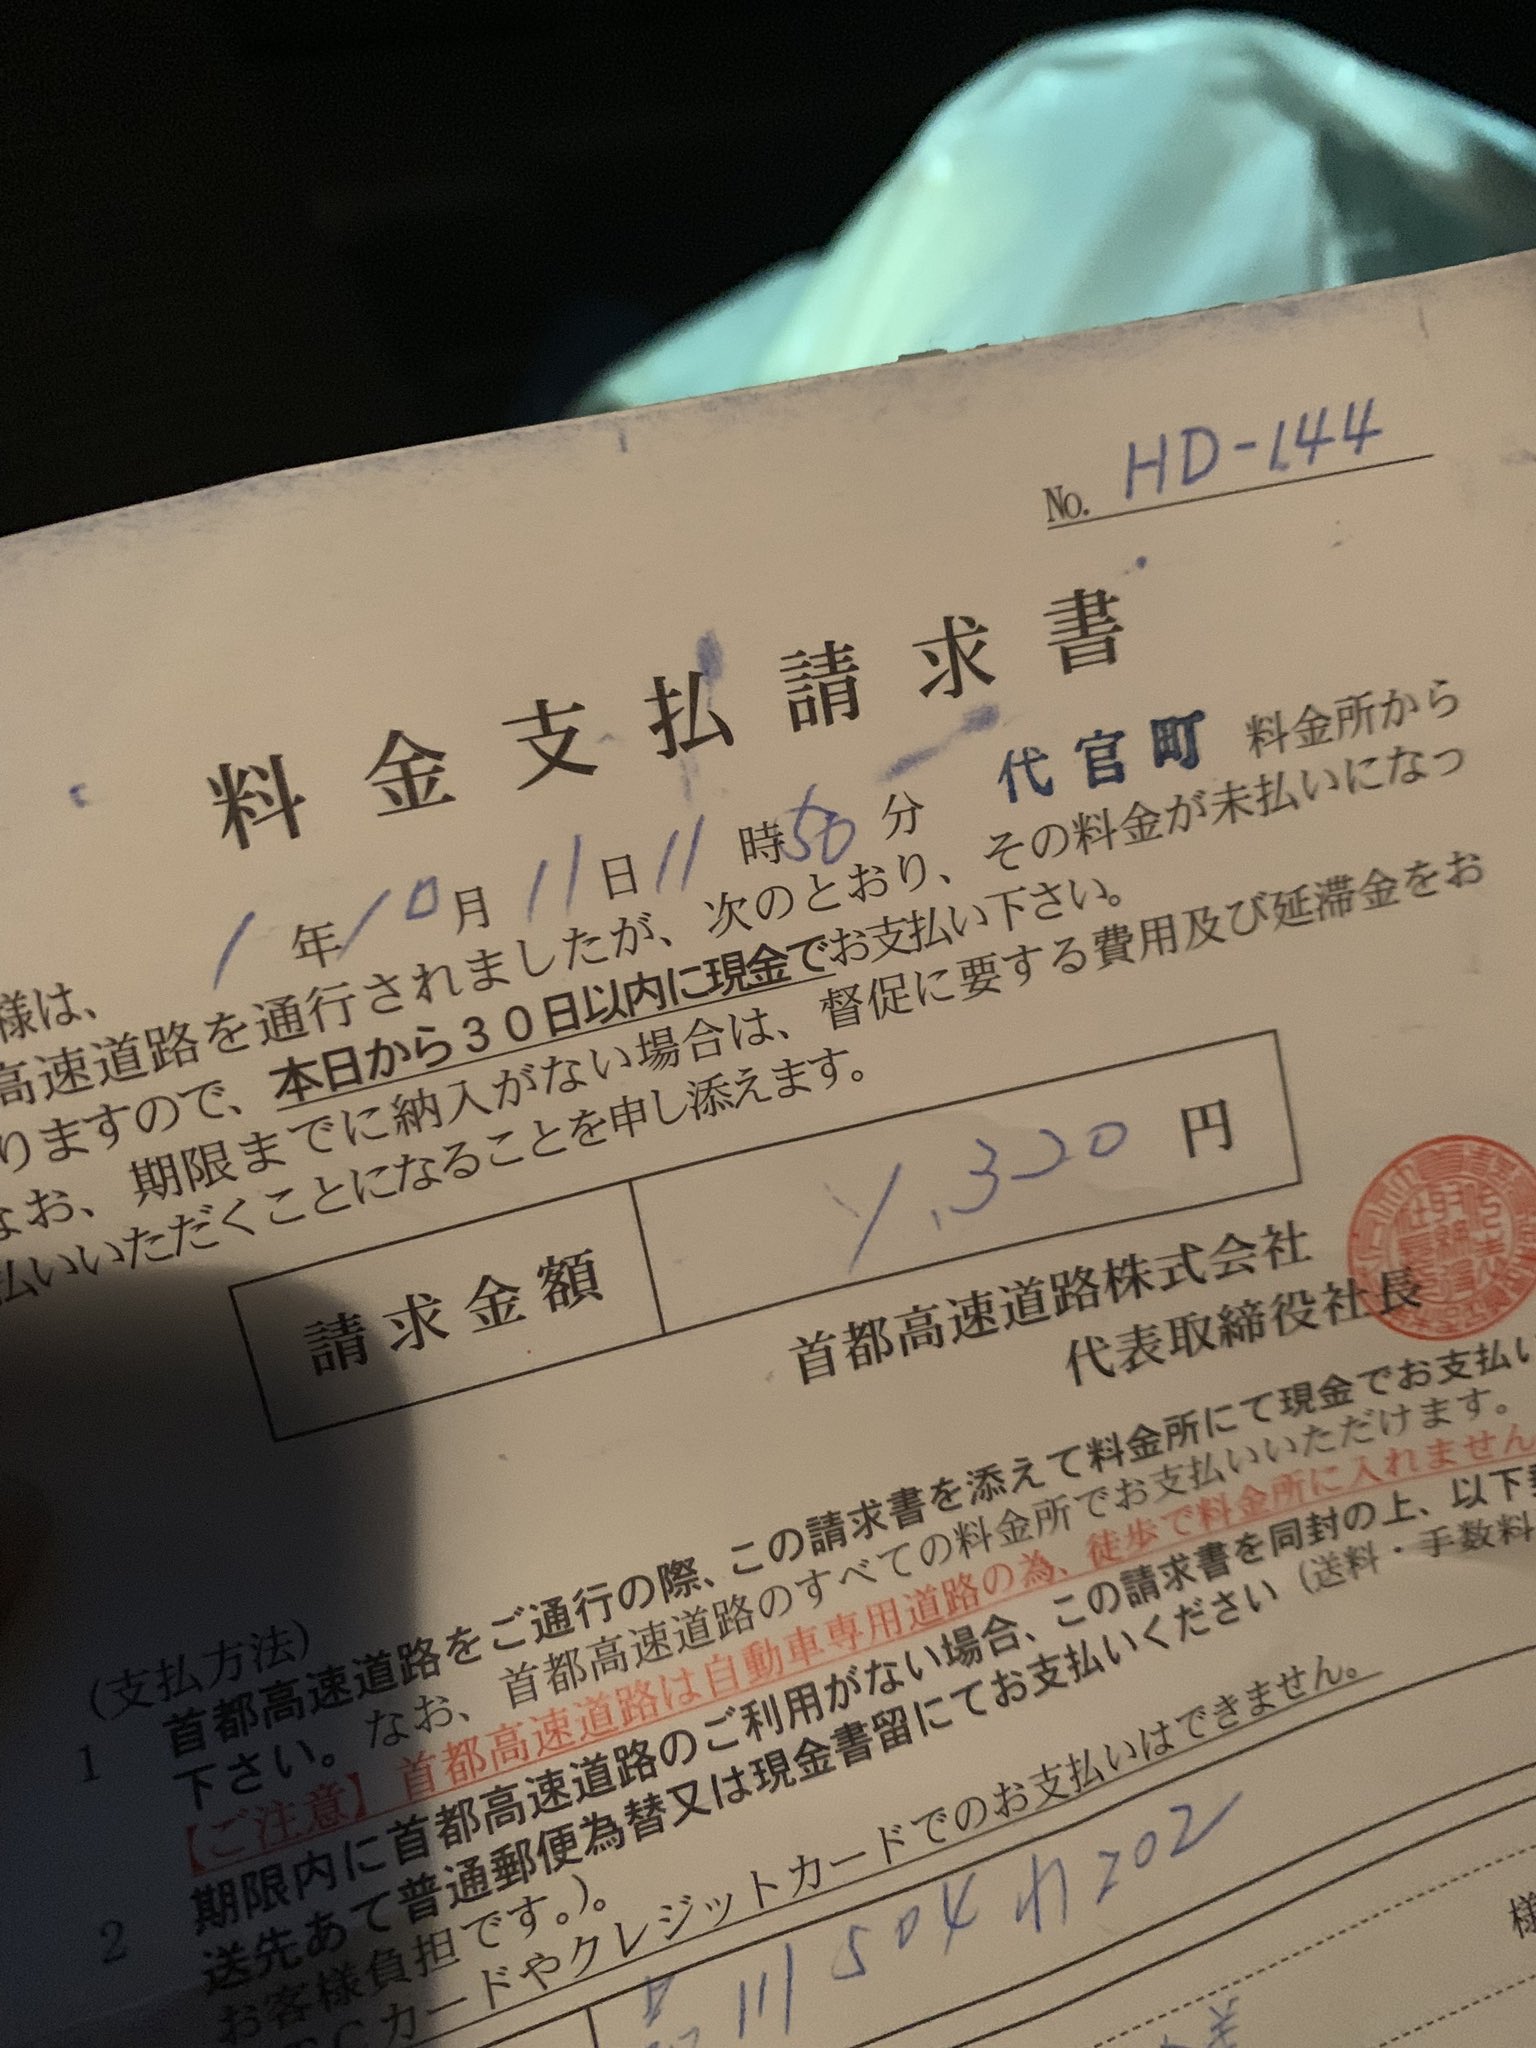 No. HD-144
料金支払請求書
様は、 1年10月11日11時50分 代官町 料金所から
高速道路を通行されましたが、次のとおり、その料金が未払いになっ
りますので、本日から30日以内に現金でお支払い下さい。
なお、期限までに納入がない場合は、督促に要する費用及び延滞金をお
払いいただくことになることを申し添えます。
請求金額 ¥1,320 円
首都高速道路株式会社
代表取締役社長
(支払方法)
1 首都高速道路をご通行の際、この請求書を添えて料金所にて現金でお支払い
下さい。なお、首都高速道路のすべての料金所でお支払いいただけます。
【ご注意】首都高速道路は自動車専用道路の為、徒歩で料金所に入れません
2 期限内に首都高速道路のご利用がない場合、この請求書を同封の上、以下
送先あて普通郵便為替又は現金書留にてお支払いください(送料・手数料
お客様負担です。)。
Cカードやクレジットカードでのお支払いはできません。
品川 504 わ 202
様